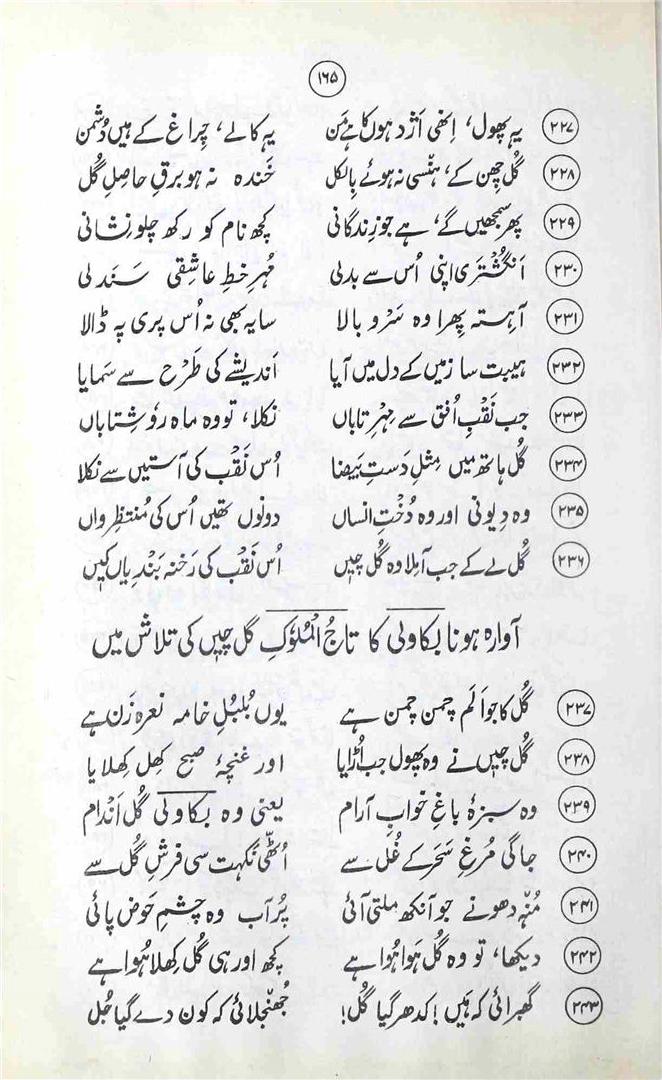 ۱۶۵
۲۲۷ یہ پھول، اِنھی اَژدہوں کا ہے مَن یہ کالے، چِراغ کے ہیں دُشمن
۲۲۸ گُل چِھن کے، ہنسی نہ ہوئے بِالکل خَندہ نہ ہو برقِ حاصلِ گُل
۲۲۹ پھر سمجھیں گے، ہے جو زِندگانی کچھ نام کو رکھ چلو نِشانی
۲۳۰ اَنگُشتَری اپنی اُس سے بدلی مُہرِ خطِ عاشِقی سَنَد لی
۲۳۱ آہستہ پِھرا وہ سَرْو بالا سایہ بھی نہ اُس پری پہ ڈالا
۲۳۲ ہیبت سا زمیں کے دل میں آیا اَندیشے کی طَرْح سے سَمایا
۲۳۳ جب نَقْبِ اُفق سے مِہْرِ تاباں نکلا، تو وہ ماہ رو شِتاباں
۲۳۴ گُل ہاتھ میں مِثلِ دَستِ بَیضا اُس نَقْب کی آستیں سے نکلا
۲۳۵ وہ دیونی اور وہ دُخْتِ انساں دونوں تھیں اُس کی مُنتظِر واں
۲۳۶ گُل لے کے جب آ مِلا وہ گُل چیں اُس نَقْب کی رَخنہ بَنْدیاں کیں
آوارہ ہونا بکاولی کا تاجُ الْمُلوٗک گل چیں کی تلاش میں
۲۳۷ گُل کا جو اَلَم چمن چمن ہے یوں بُلبُلِ خامہ نعرہ زَن ہے
۲۳۸ گُل چیں نے وہ پھول جب اُڑایا اور غنچۂ صبح کِھل کِھلایا
۲۳۹ وہ سبزۂ باغِ خوابِ آرام یعنی وہ بکاولی گُل اَنْدام
۲۴۰ جاگی مُرغِ سَحَر کے غُل سے اُٹھّی نَکہت سی فرشِ گُل سے
۲۴۱ مُنْہ دھونے جو آنکھ ملتی آئی پُر آب وہ چشمِ حَوض پائی
۲۴۲ دیکھا، تو وہ گُل ہَوا ہُوا ہے کچھ اور ہی گُل کِھلا ہُوا ہے
۲۴۳ گھبرائی کہ ہَیں! کدھر گیا گُل! جُھنْجلائی کہ کون دے گیا جُل